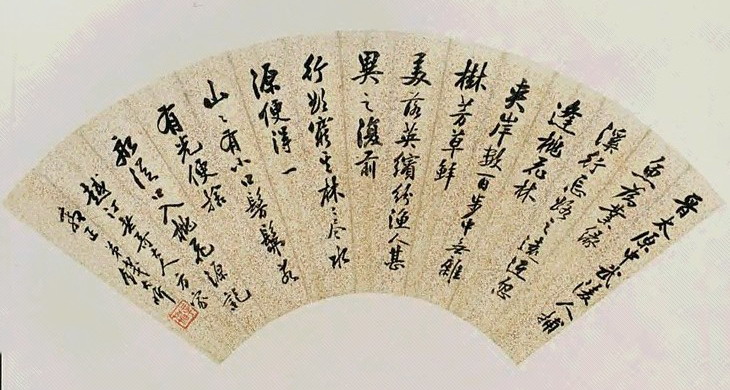 晋太原中武陵人捕
魚為業緣
溪行忘路之遠近忽
逢桃花林
夾岸數百步中無雜
樹芳草鮮
美落英繽紛漁人甚
異之復前
行欲窮其林〻尽水
源便得一
山〻有小口髣髴若
有光便捨
船從口入桃花源記
越江大人方家
正錢大昕